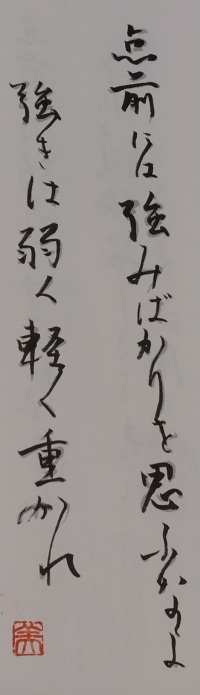 点前には強みばかりを思ふなよ
強きは弱く軽く重かれ
美